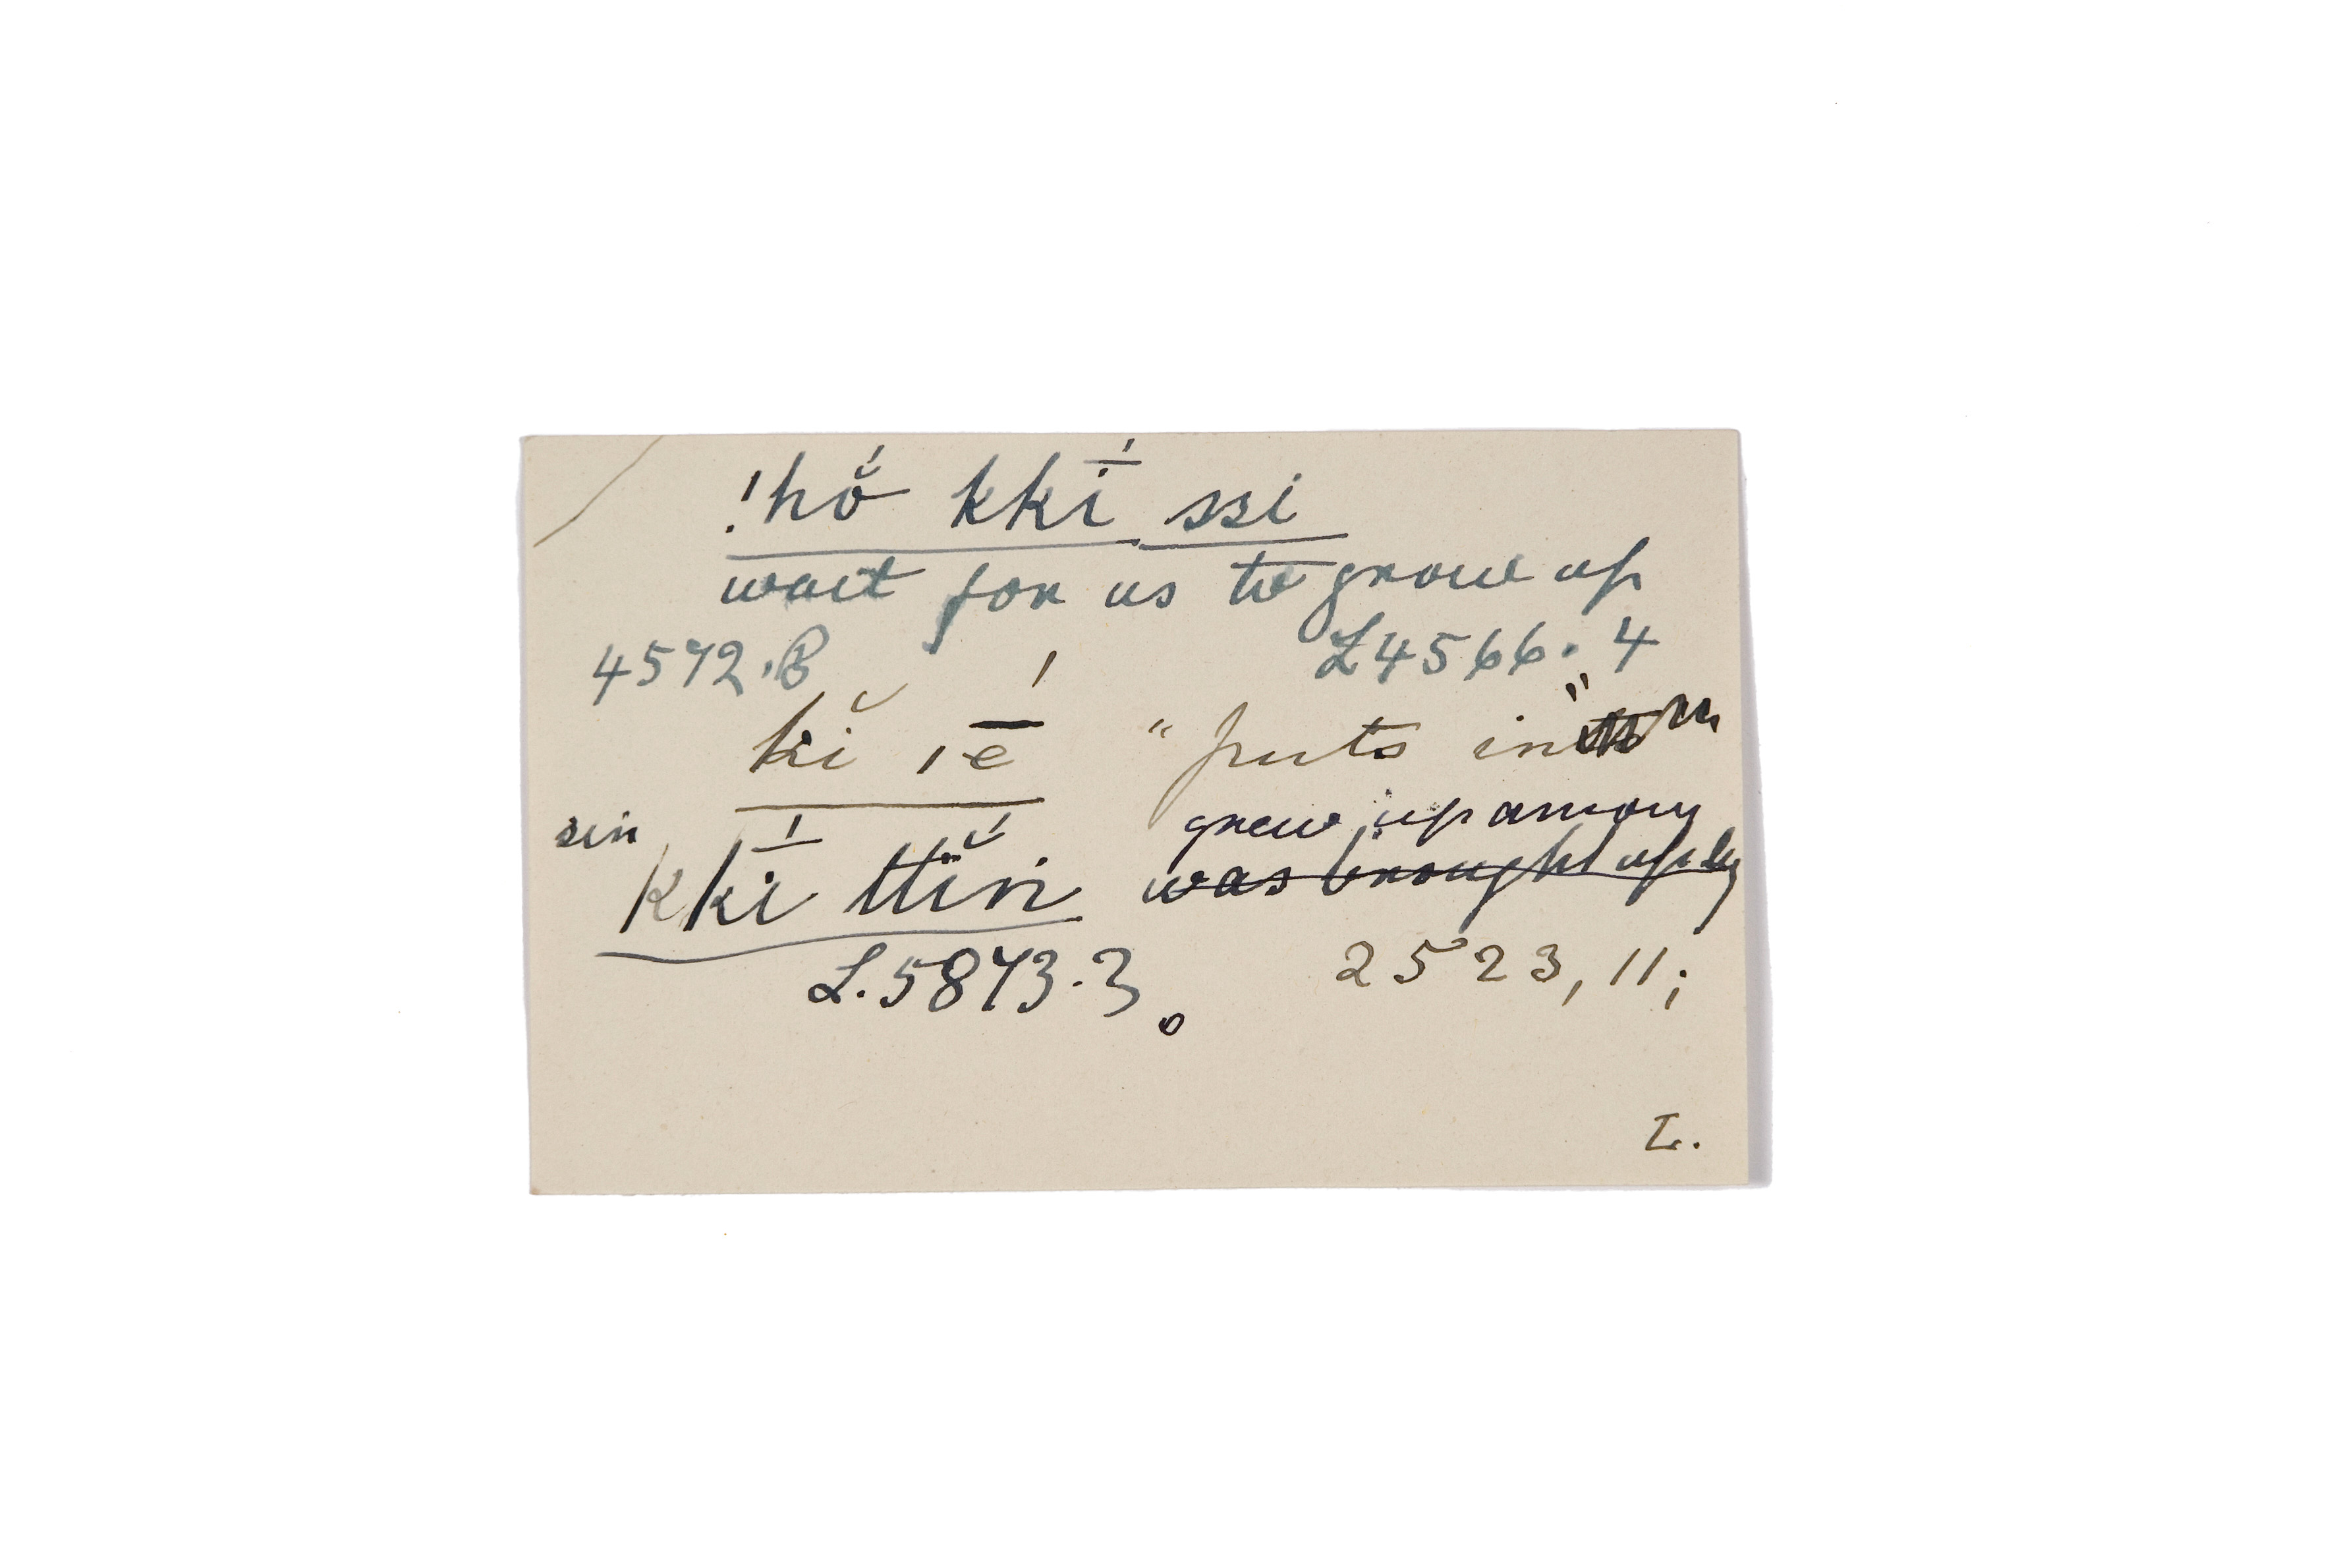 !hŏ́ kkī́ ssi
wait for us to grow up
4572.B L4566.4
kĭ ıḗ "puts in"
sin grew up among
kkī́ ttĭ́n was brought up by
L.5873.3. 2523,11;
L.